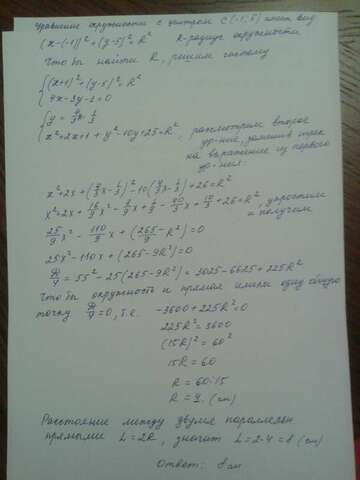 Уравнение окружности с центром C(-1;5) имеет вид
(x-(-1))²+(y-5)²=R²   R-радиус окружности
Чтобы найти R, решим систему
{(x+1)²+(y-5)²=R²
4x-3y-1=0
{y=4/3x-1/3
x²+2x+1+y²-10y+25=R², рассмотрим второе
ур-ние, заменив игрек
на выражение из первого
ур-ния:
x²+2x+(4/3x-1/3)²-10(4/3x-1/3)+26=R²
x²+2x+16/9x²-8/9x+1/9-40/3x+10/3+26=R², упростим
и получим
25/9x²-110/9x+(265-9R²)=0
25x²-110x+(265-9R²)=0
D/4=55²-25(265-9R²)=3025-6625+225R²
Чтобы окружность и прямая имели одну общую
точку D/4=0, т.е. -3600+225R²=0
225R²=3600
(15R)²=60²
15R=60
R=60:15
R=4 (см)
Расстояние между двумя параллельн
прямыми L=2R, значит L=2·4=8 (см)
Ответ: 8 см